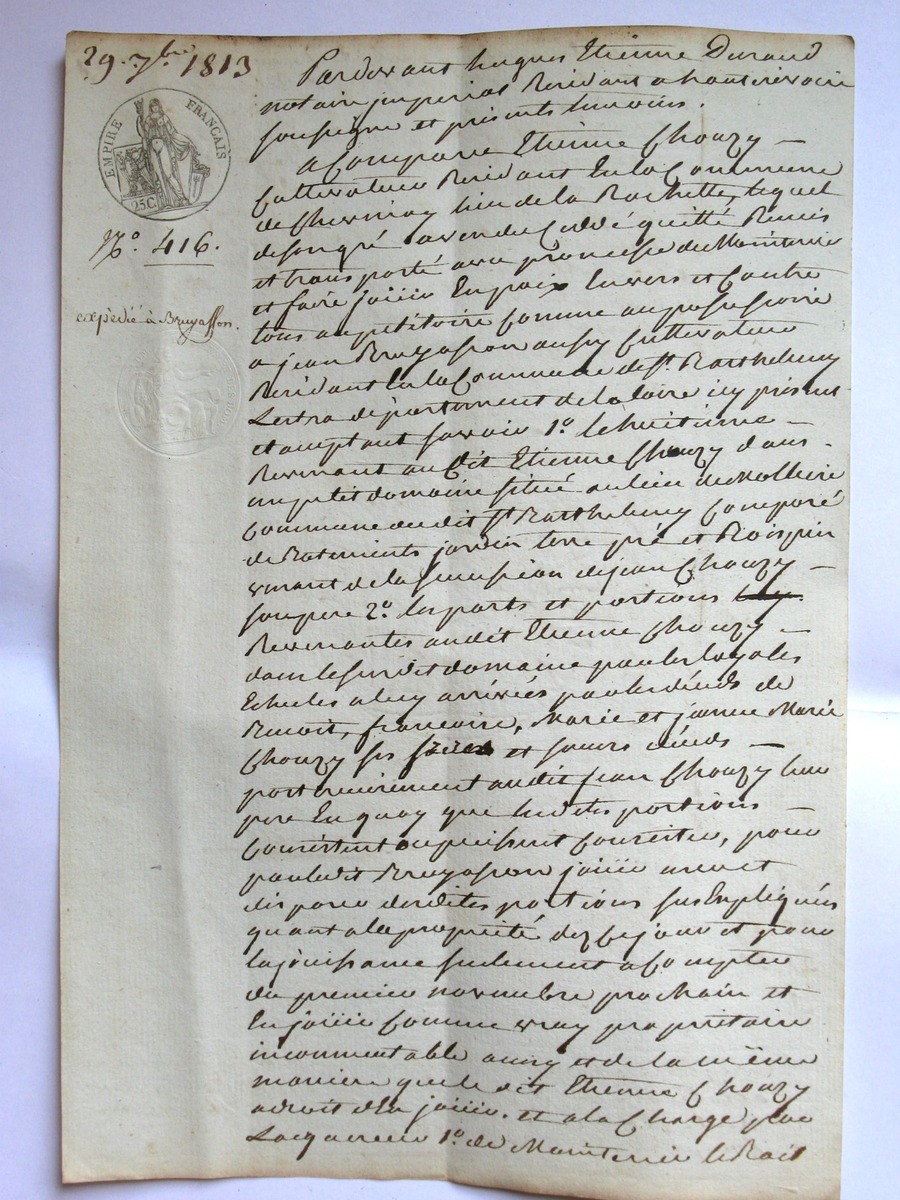 29. 7bre 1813
EMPIRE FRANÇAIS
25C
No. 416.
expédié à Bruyasson.
Pardevant hugues Etienne Durand
notaire jmperial Residant a haut rivoire
soussigné et presents temoins.
a Comparu Etienne Chouzy —
Cultivateur Residant En la Commune
de Chevrinay lieu de la Rochette, lequel
de son gré a vendu Cedé quitté Remis
et transporté avec promesse de Maintenir
et faire joüir En paix Envers et Contre
tous au petitoire Comme au possessoire
a jean Bruyasson aussy Cultivateur
Residant En la Commune de St. Barthelemy
Lestra departement de la Loire icy présent
et acceptant savoir 1o. le huitieme —
Revenant au dit Etienne Chouzy dans
un petit domaine situé au lieu de
Commune du dit St Barthelemy Composé
de Batiments jardin terre pré et Bois pin
venant de la succession de jean Chouzy —
son pere 2o. les parts et portions
Revenantes au dit Etienne Chouzy —
dans le susdit domaine par les loyales
Echutes a luy arrivées par le décès de
Benoit, francoise, Marie et jeanne Marie
Chouzy ses freres et soeurs décédés —
posterieurement au dit jean Chouzy leur
pere En quoy que lesdites portions —
Consistent ou puissent Consister, pour
par ledit Bruyasson joüir user et
disposer desdites portions sus Expliquées
quant a la propriété dez Ce jour et pour
la joüissance seulement a Compter
du premier novembre prochain et
En joüir Comme vray propriétaire
incommutable ainsy et de la même
maniere que le dit Etienne Chouzy
a droit d'En joüir. et a la Charge par
Lacquereur 1o. de Maintenir le Bail